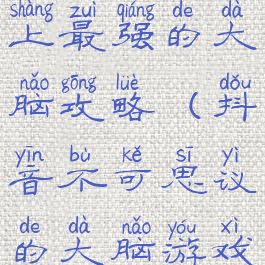 shàng zuì qiáng de dà
上最强的大
nǎo gōng lüè dǒu
脑攻略（抖
yīn bù kě sī yì
音不可思议
de dà nǎo yóu xì
的大脑游戏